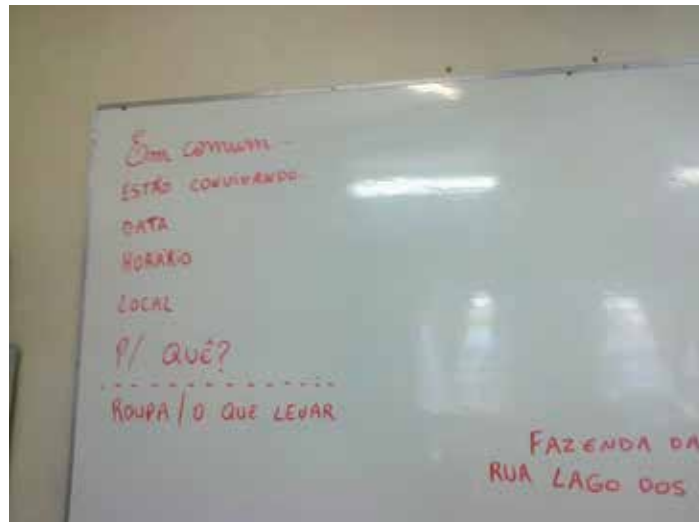 Em comum
ESTÃO CONVIDANDO
DATA
HORÁRIO
LOCAL
P/ QUÊ?
ROUPA / O QUE LEVAR
FAZENDA DA
RUA LAGO DOS